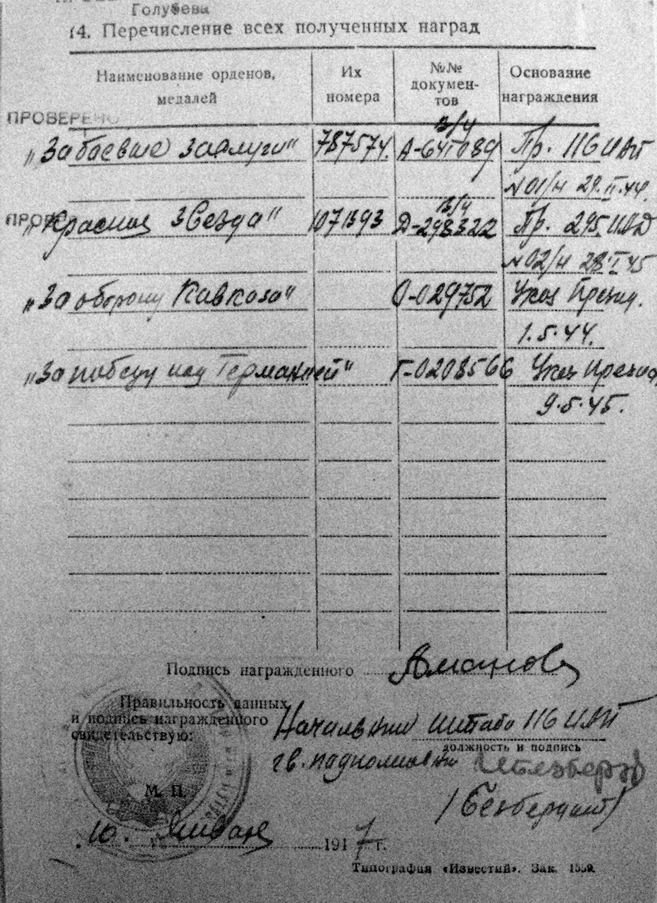 Голубева
14. Перечисление всех полученных наград
Наименование орденов, медалей
Их номера
№№ докумен-тов
Основание награждения
ПРОВЕРЕНО
в/ч
„За боевые заслуги" 787574. А-641089 Пр. 116 ИАП
№ 01/н 29.II.44.
ПРОВЕ
в/ч
„Красная звезда" 1071393 Д-298322 Пр. 295 ИАД
№ 02/н 28.I.45
„За оборону Кавказа" О-029752 Указ Презид.
1.5.44.
„За победу над Германией" Г-0208566 Указ Презид.
9.5.45.
Подпись награжденного Аманов
Правильность данных
и подпись награжденного
свидетельствую:
Начальник штаба 116 ИАП
должность и подпись
гв. подполковник
М. П.
10. Января 1947 г.
Типография «Известий». Зак. 1559.